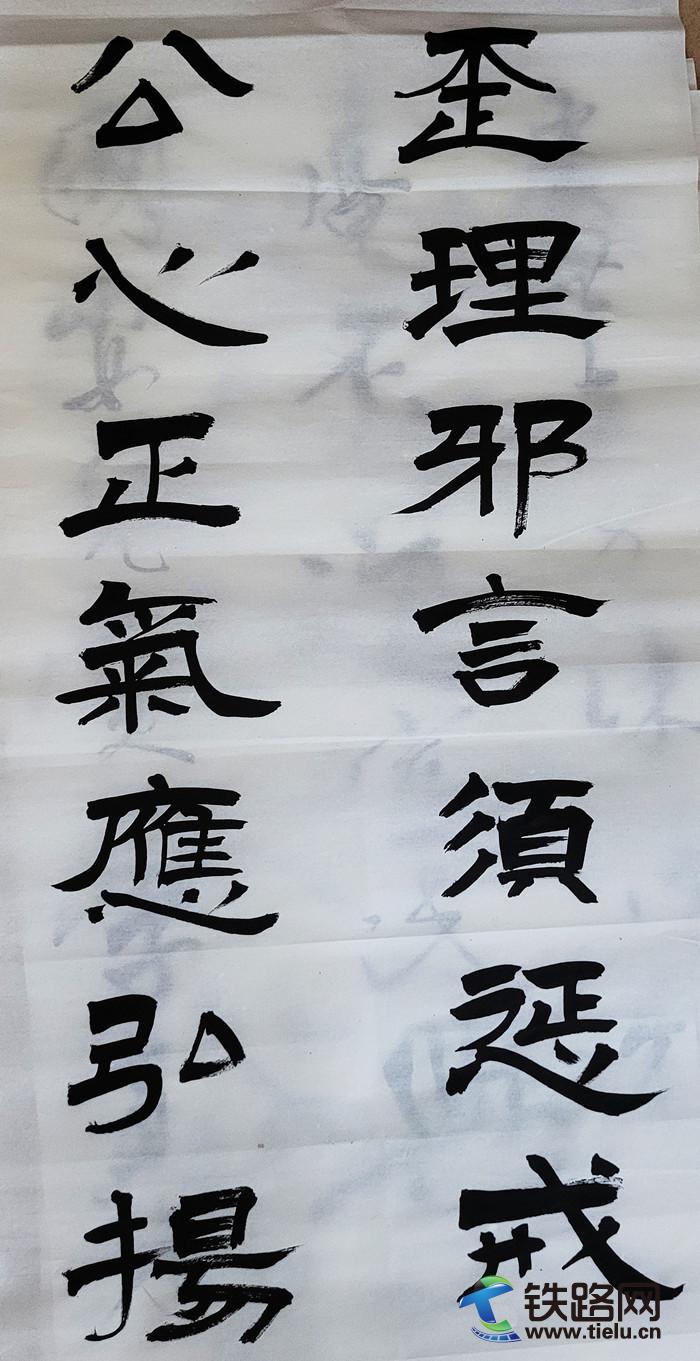 歪理邪言須惩戒
公心正氣應弘揚
铁路网
www.tielu.cn